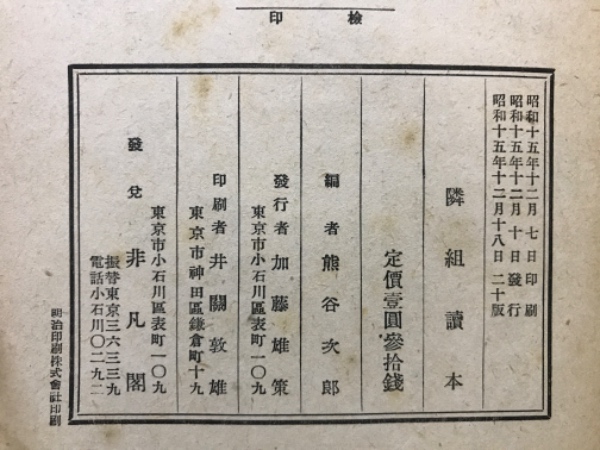 檢印
昭和十五年十二月七日印刷
昭和十五年十二月十日發行
昭和十五年十二月十八日二十版
隣組讀本
定價壹圓參拾錢
編者熊谷次郎
發行者加藤雄策
東京市小石川區表町一〇九
印刷者井關敦雄
東京市神田區鎌倉町十九
發兌非凡閣
東京市小石川區表町一〇九
振替東京三六三三九
電話小石川〇二九二
明治印刷株式會社印刷